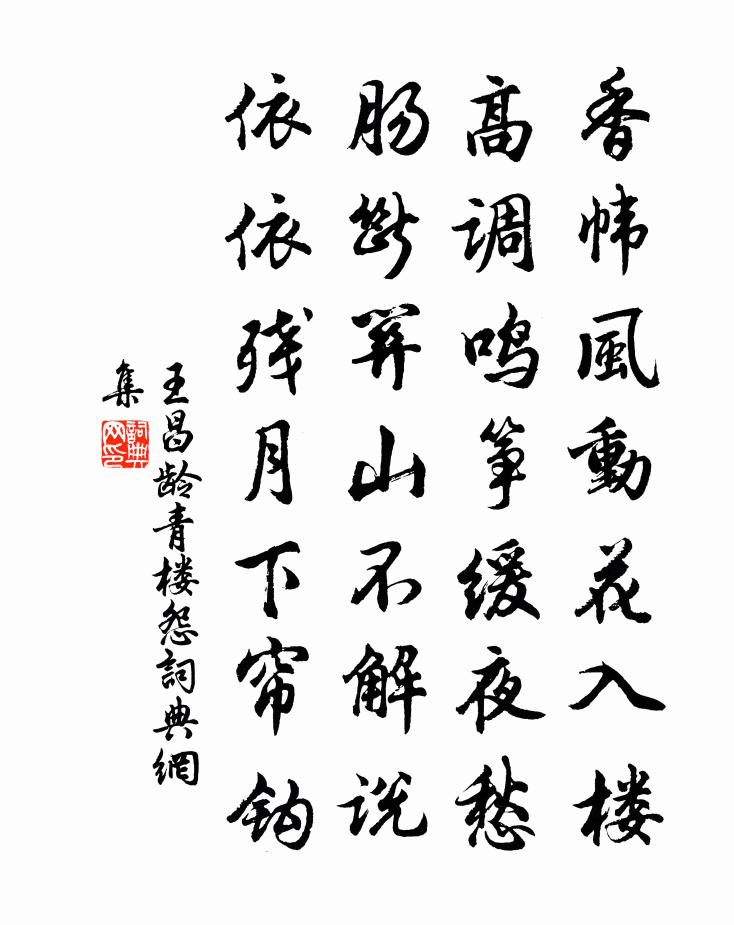 香帏風動花入楼
高调鸣筝缓夜愁
肠斷关山不解说
依依残月下帘钩
王昌龄青楼怨詞典網
集
詞典
网印